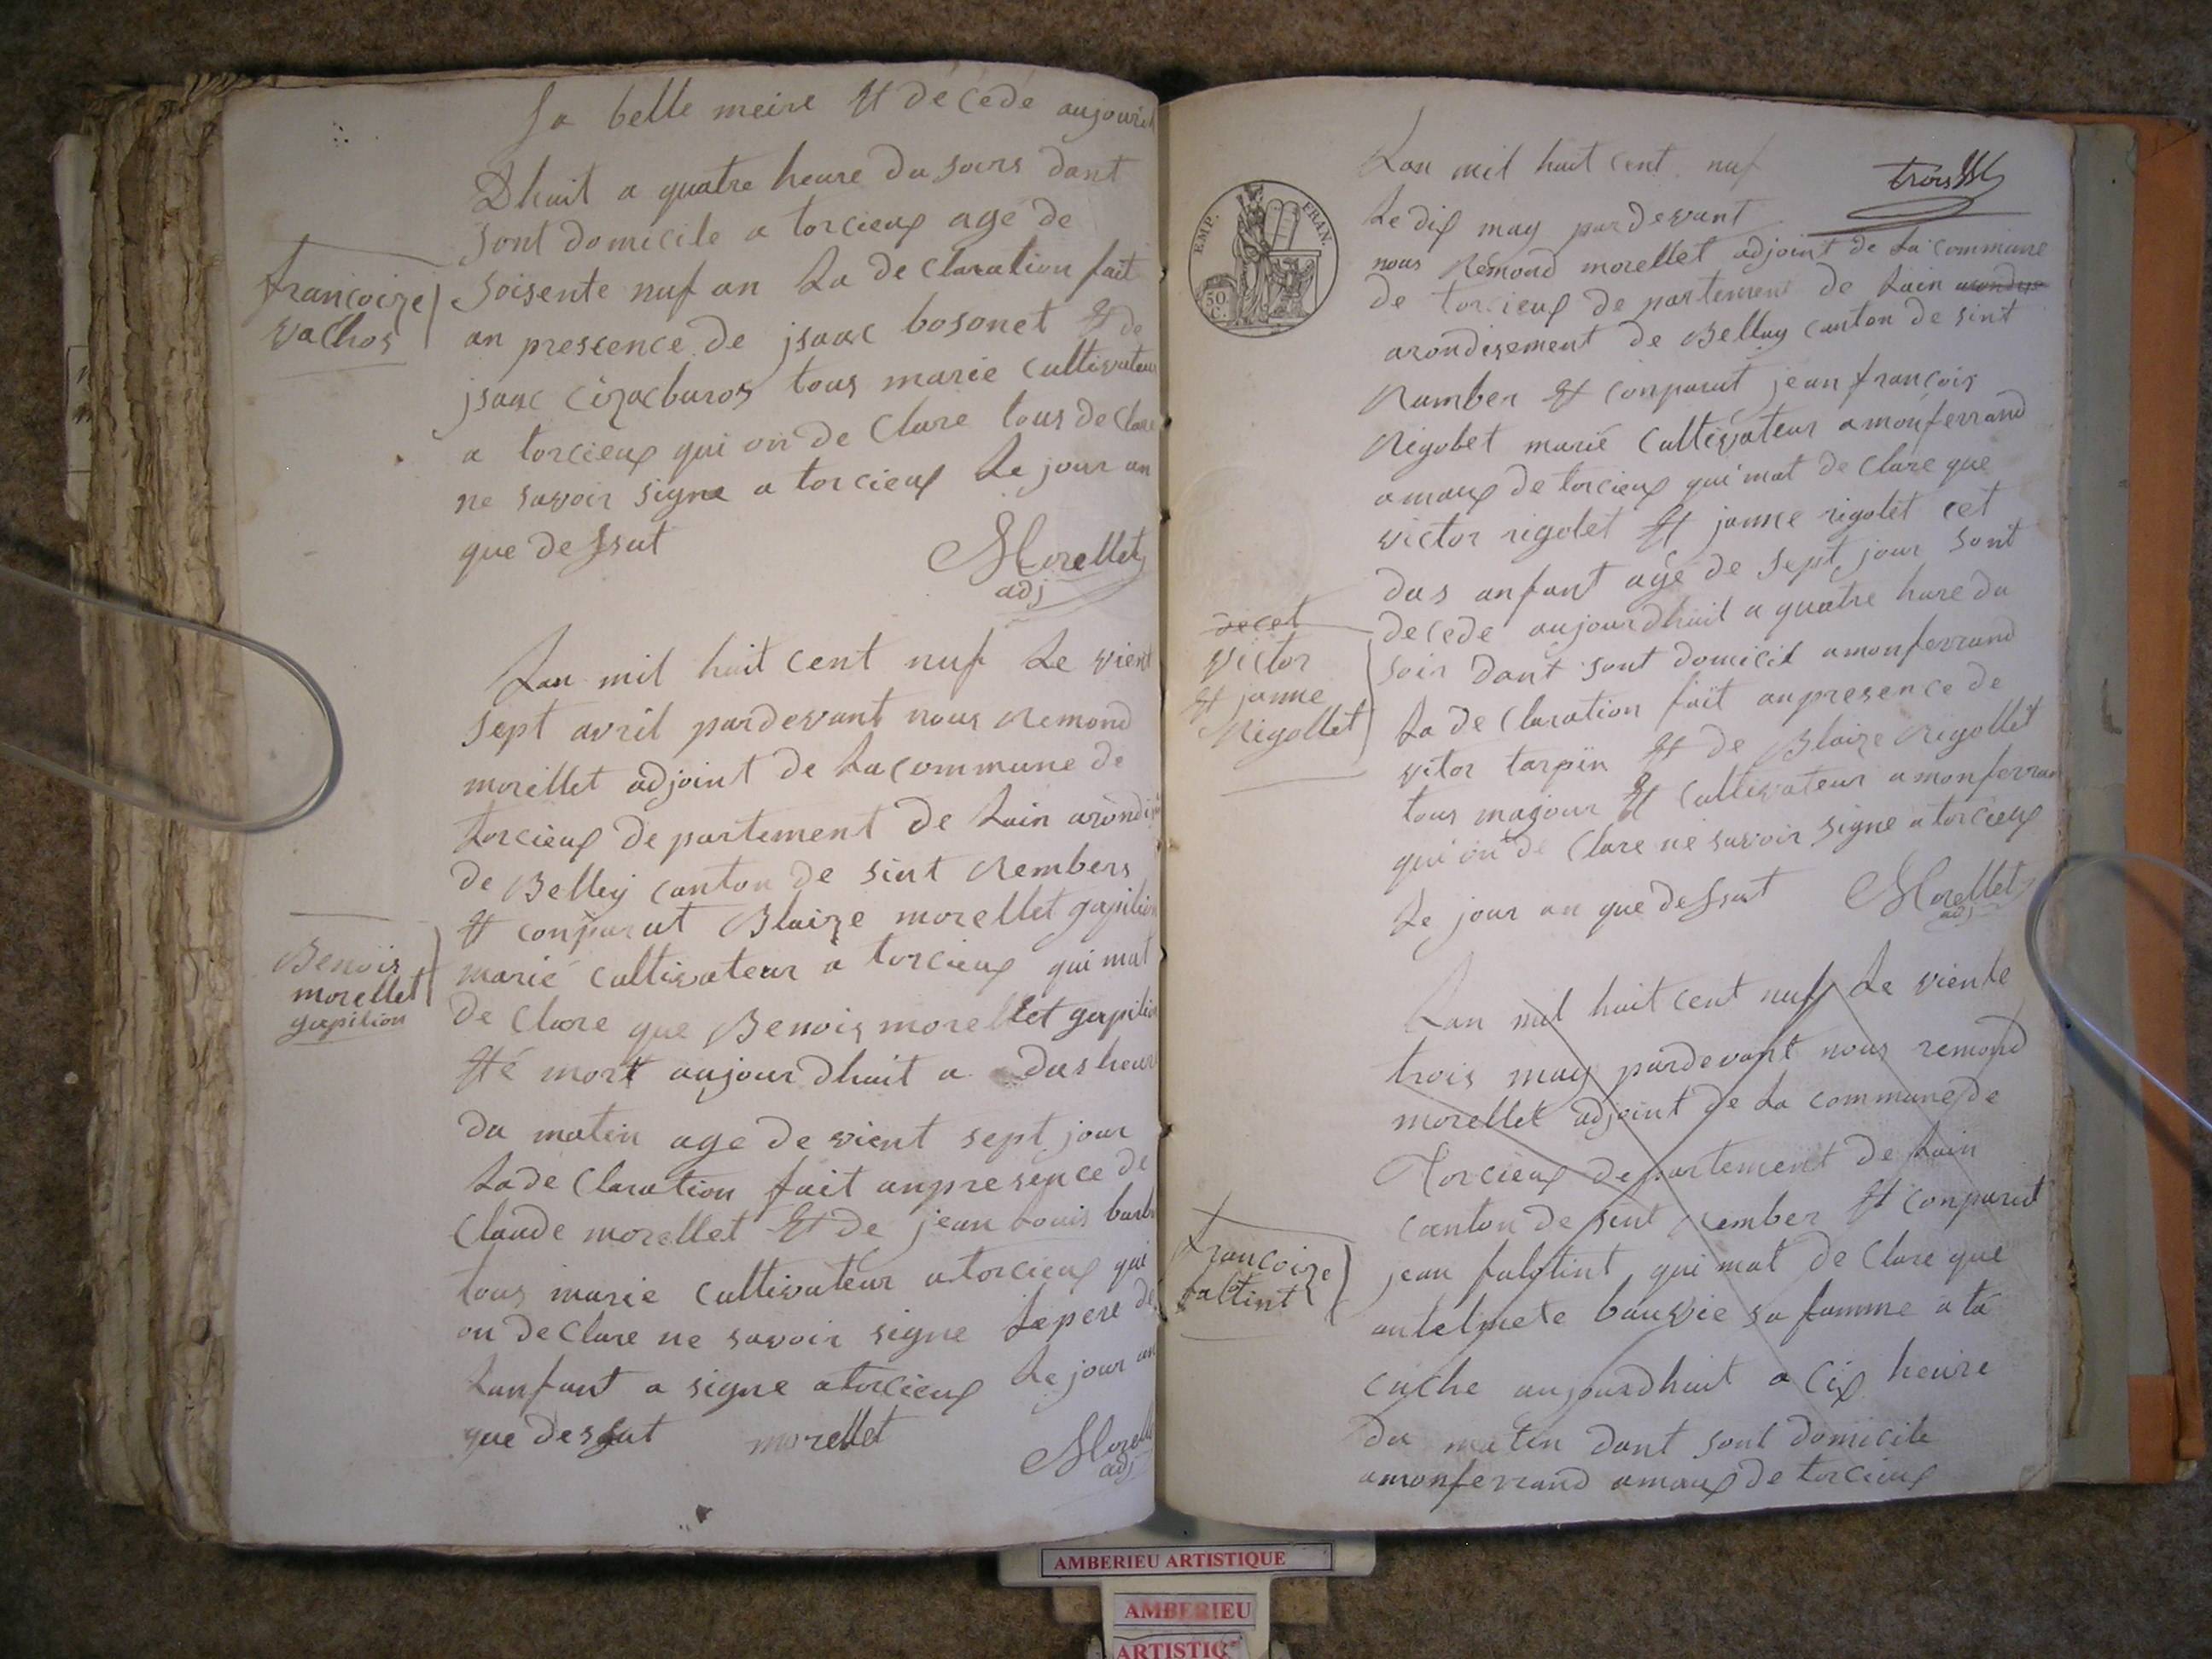 Sa belle meire Et décédé aujour
Dhuit a quatre heure du soirs dant
sont domicile a torcieux age de
soisente nuf an La de claration fait
an prescence de jsaac bosonet Et de
jsaac tous marie cultivateur
a torcieux qui on de clare tous de clare
ne savoir signe a torcieux Le jour an
que dessut
Morellet
adj
francoize
vachos
Lan mil huit cent nuf Le vient
sept avril pardevant nous Remond
morellet adjoint de La commune de
torcieux de partement de Lain arondi
de Belley canton de sint Rembers
Et conparut Blaize morellet gapilion
marié cultivateur a torcieux qui mat
de clare que Benois morellet gapilion
Et é mort aujourdhuit a dus heur
du matin age de vient sept jour
La de claration fait anpresence de
Claude morellet Et de jean Louis
tous marie cultivateur a torcieux qui
on de clare ne savoir signe Le pere de
Lanfant a signe a torcieux Le jour an
que dessut morellet
Morell
adj
Benois
morellet
gapilion
EMP. FRAN.
50
C.
Lan mil huit cent nuf
Le dix may pardevant
nous Remond morellet adjoint de La commune
de torcieux de partement de Lain
arondisement de Belley canton de sint
Ramber Et conparut jean françois
Rigolet marié cultivateur a monferrand
amaux de torcieux qui mat de clare que
victor rigolet Et janne rigolet cet
dus anfant agé de sept jour sont
decede aujourdhuit a quatre hure du
soir dant sont domicil a monferrand
La de claration fait anpresence de
vitor tarpin Et de Blaize Rigollet
tous majour Et cultivateur a monferran
qui on de clare ne savoir signe a torcieux
Le jour an que dessut Morellet
adj
decet
victor
Et janne
Rigollet
Lan mil huit cent nuf Le viente
trois may pardevant nous remond
morellet adjoint de La commune de
Torcieux departement de Lain
canton de sint Rember Et conparut
jean falotint qui mat de clare que
antelmete bauvie sa famme a ta
cuche aujourdhuit a cix heure
du matin dant sont domicile
a monferrand amaux de torcieux
francoize
faltint
AMBERIEU ARTISTIQUE
AMBERIEU
ARTISTIQ